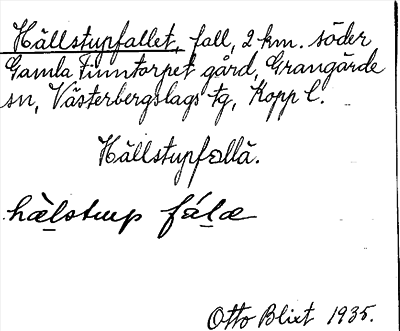 Hällstupfallet, fall, 2 km. söder
Gamla Finntorpet gård, Grangärde
sn, Västerbergslags tg, Kopp l.
Hällstupfallä.
hälstup fálæ
Otto Blixt 1935.